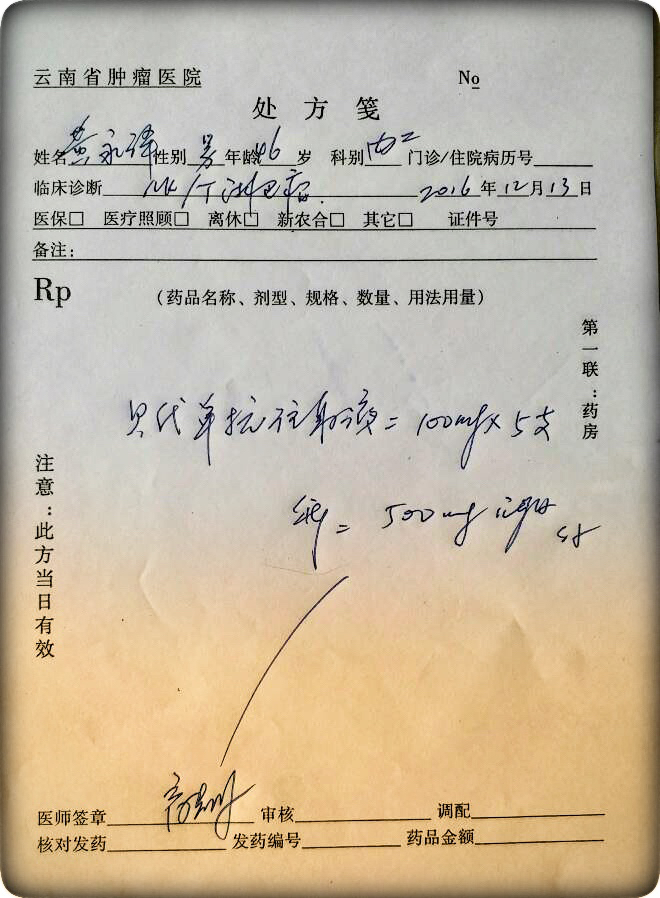 云南省肿瘤医院 No
处方笺
姓名 黄永 性别 男 年龄 46 岁 科别 内二 门诊/住院病历号
临床诊断 NK/T淋巴瘤. 2016年12月13日
医保□ 医疗照顾□ 离休□ 新农合□ 其它□ 证件号
备注:
Rp (药品名称、剂型、规格、数量、用法用量)
第一联:药房
单抗注射液=100mg×5支
= 500mg
注意:此方当日有效
医师签章 审核 调配
核对发药 发药编号 药品金额